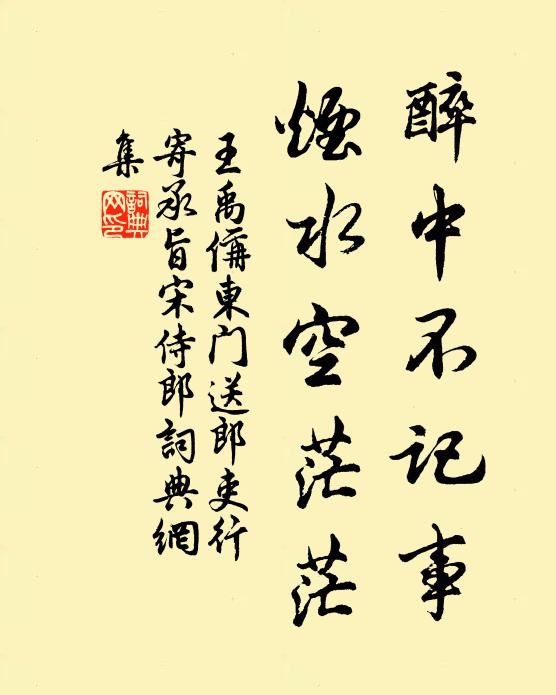 醉中不记事
煙水空茫茫
王禹偁東门送郎吏行
寄承旨宋侍郎詞典網
集
詞典
网印